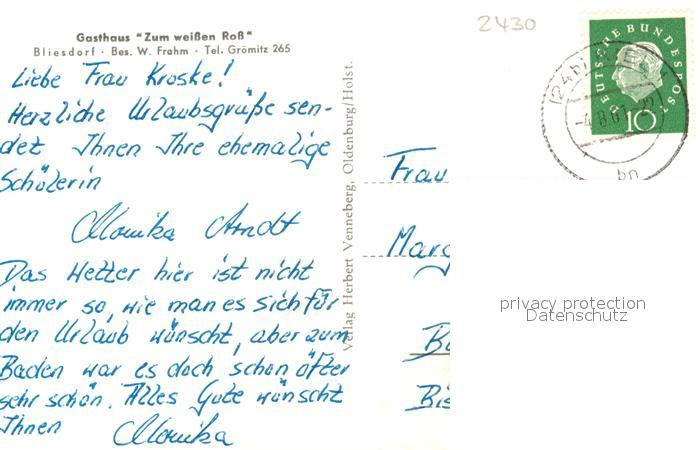 2430
Gasthaus "Zum weißen Roß"
Bliesdorf · Bes. W. Frahm · Tel. Grömitz 265
Liebe Frau Kroske!
Herzliche Urlaubsgrüße sen-
det Ihnen Ihre ehemalige
Schülerin
Monika Arndt
Das Wetter hier ist nicht
immer so, wie man es sich für
den Urlaub wünscht, aber zum
Baden war es doch schon öfter
sehr schön. Alles Gute wünscht
Ihnen Monika
Verlag Herbert Venneberg, Oldenburg/Holst.
DEUTSCHE BUNDESPOST
10
(24b)
-4.8.61
Frau
Marg
Bis
privacy protection
Datenschutz